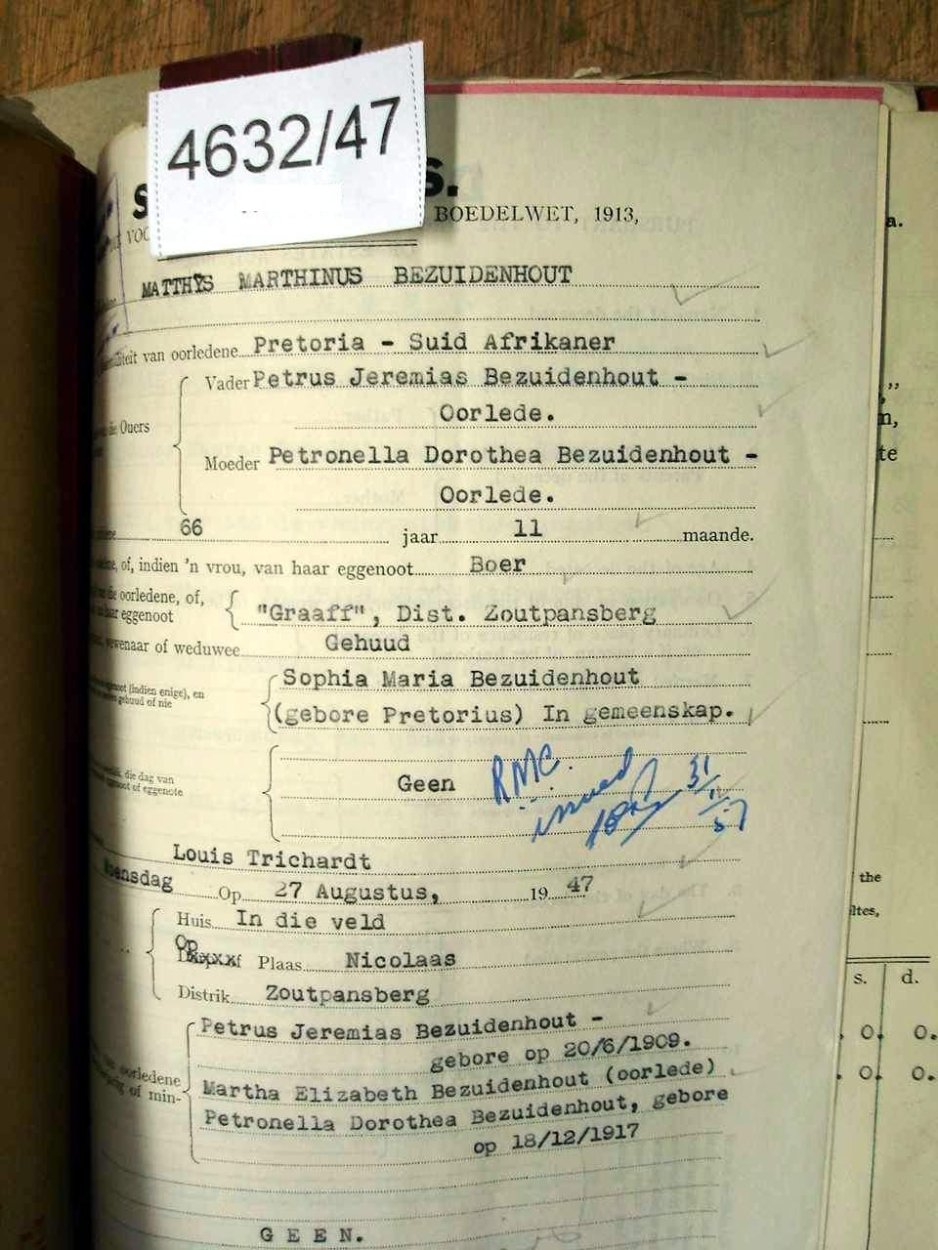 4632/47
S s.
BOEDELWET, 1913,
MATTHYS MARTHINUS BEZUIDENHOUT
van oorledene Pretoria - Suid Afrikaner
Vader Petrus Jeremias Bezuidenhout -
Oorlede.
Ouers
Moeder Petronella Dorothea Bezuidenhout -
Oorlede.
66 jaar 11 maande.
of, indien 'n vrou, van haar eggenoot Boer
oorledene, of,
eggenoot "Graaff", Dist. Zoutpansberg
of weduwee Gehuud
(indien enige), en
gehuud of nie
Sophia Maria Bezuidenhout
(gebore Pretorius) In gemeenskap.
die dag van
of eggenote
Geen
R.M.C.
issued
31/1/57
Louis Trichardt
Woensdag Op 27 Augustus, 1947
Huis In die veld
Op
Plaas Nicolaas
Distrik Zoutpansberg
Petrus Jeremias Bezuidenhout -
gebore op 20/6/1909.
oorledene
of min-
Martha Elizabeth Bezuidenhout (oorlede)
Petronella Dorothea Bezuidenhout, gebore
op 18/12/1917
GEEN.
a.
„
n,
te
the
ltes,
s. d.
0. 0.
0. 0.